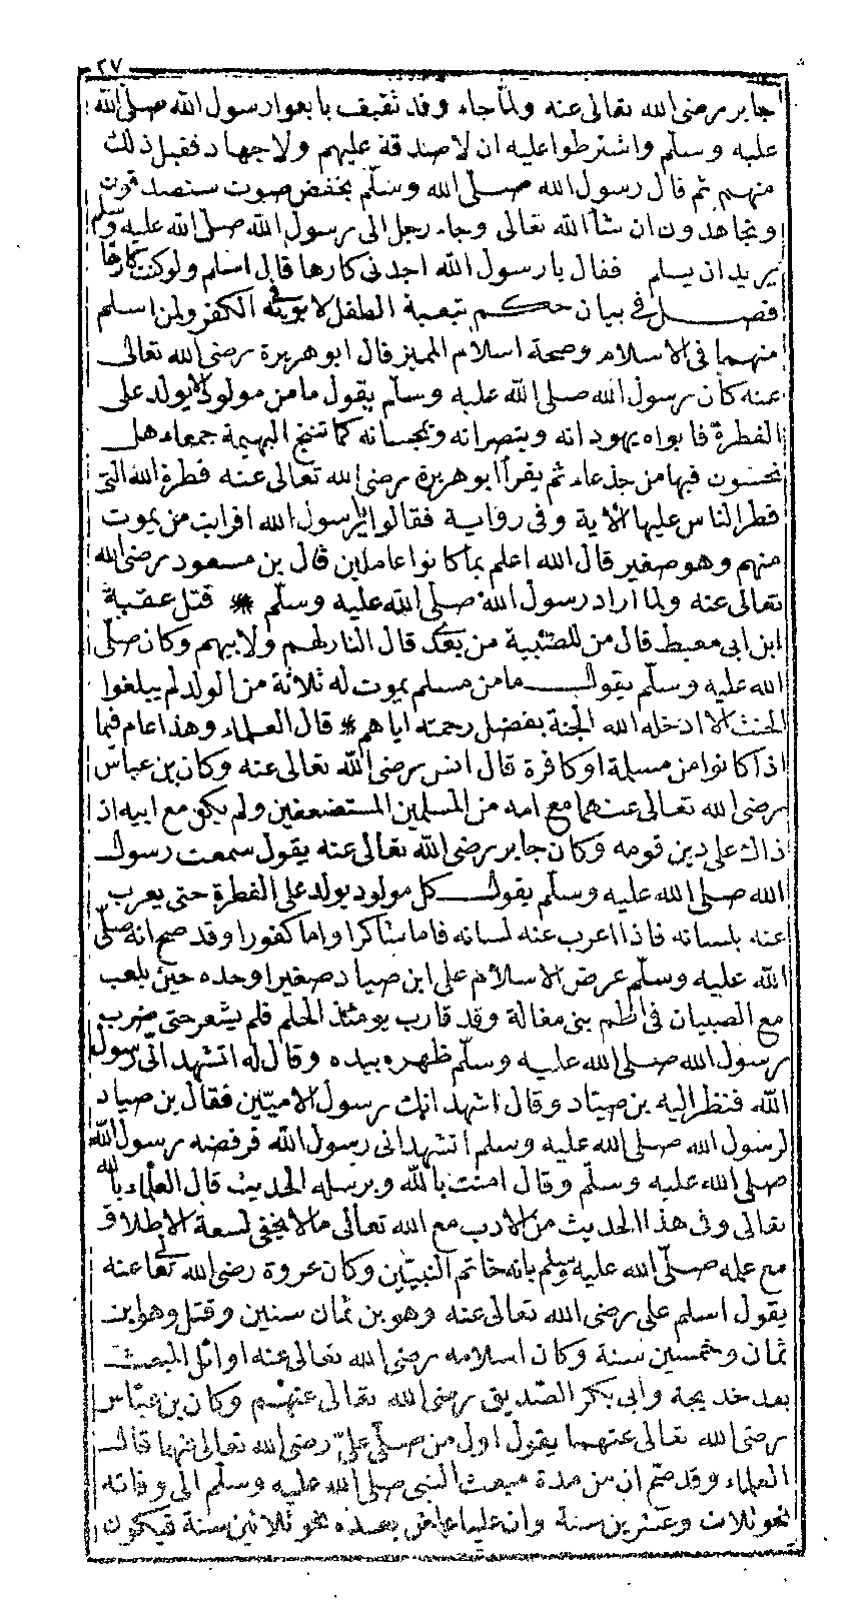 ٢٧
جابر رضى الله تعالى عنه ولما جاء وفد ثقيف بايعوا رسول الله صلى الله
عليه وسلم واشترطوا عليه ان لا صدقة عليهم ولا جهاد فقبل ذلك
منهم ثم قال رسول الله صلى الله وسلم بخفض صوت سنصدقون
ويجاهدون ان شاء الله تعالى وجاء رجل الى رسول الله صلى الله عليه وسلم
يريد ان يسلم فقال يا رسول الله اجدنى كارها قال اسلم ولو كنت كارها
فصل فى بيان حكم تبعية الطفل لابويه فى الكفر ولمن اسلم
منهما فى الاسلام وصحة اسلام المميز قال ابو هريرة رضى الله تعالى
عنه كان رسول الله صلى الله عليه وسلم يقول ما من مولود الا يولد على
الفطرة فابواه يهودانه وينصرانه ويمجسانه كما تنتج البهيمة جمعاء هل
تحسون فيها من جذعاء ثم يقرأ ابو هريرة رضى الله تعالى عنه فطرة الله التى
فطر الناس عليها الاية وفى رواية فقالوا يا رسول الله افرايت من يموت
منهم وهو صغير قال الله اعلم بما كانوا عاملين قال بن مسعود رضى الله
تعالى عنه ولما اراد رسول الله صلى الله عليه وسلم * قتل عقبة
ابن ابى معيط قال من للصبية من بعدك قال النار لهم ولابيهم وكان صلى
الله عليه وسلم يقول ما من مسلم يموت له ثلاثة من الولد لم يبلغوا
الحنث الا ادخله الله الجنة بفضل رحمته اياهم * قال العلماء وهذا عام فيما
اذا كانوا من مسلمة او كافرة قال انس رضى الله تعالى عنه وكان بن عباس
رضى الله تعالى عنهما مع امه من المسلمين المستضعفين ولم يكن مع ابيه اذ
ذاك على دين قومه وكان جابر رضى الله تعالى عنه يقول سمعت رسول
الله صلى الله عليه وسلم يقول كل مولود يولد على الفطرة حتى يعرب
عنه بلسانه فاذا اعرب عنه لسانه فاما شاكرا واما كفورا وقد صح انه صلى
الله عليه وسلم عرض الاسلام على ابن صياد صغيرا وحده حين يلعب
مع الصبيان فى اطم بنى مغالة وقد قارب يومئذ الحلم فلم يشعر حتى ضرب
رسول الله صلى الله عليه وسلم ظهره بيده وقال له اتشهد انى رسول
الله فنظر اليه بن صياد وقال اشهد انك رسول الاميين فقال بن صياد
لرسول الله صلى الله عليه وسلم اتشهد انى رسول الله فرفضه رسول الله
صلى الله عليه وسلم وقال امنت بالله وبرسله الحديث قال العلماء بالله
تعالى وفى هذا الحديث من الادب مع الله تعالى ما لا يخفى لسعة الاطلاق
مع علمه صلى الله عليه وسلم بانه خاتم النبيين وكان عروة رضى الله تعالى عنه
يقول اسلم على رضى الله تعالى عنه وهو بن ثمان سنين وقتل وهو ابن
ثمان وخمسين سنة وكان اسلامه رضى الله تعالى عنه اوائل المبعث
بعد خديجة وابى بكر الصديق رضى الله تعالى عنهم وكان بن عباس
رضى الله تعالى عنهما يقول اول من صلى على رضى الله تعالى عنهما قال
العلماء وقد صح ان من مدة مبعث النبى صلى الله عليه وسلم الى وفاته
نحو ثلاث وعشرين سنة وان عليا عاش بعده نحو ثلاثين سنة فيكون